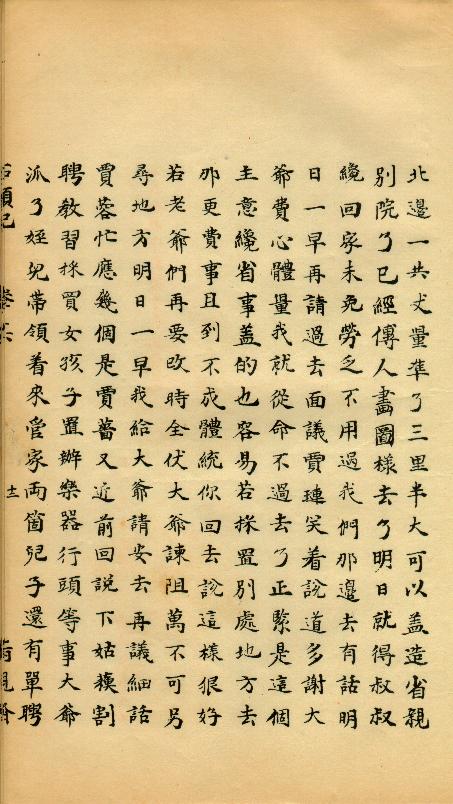 北邊一共丈量準了三里半大可以盖造省親
別院了已經傳人畫圖樣去了明日就得叔叔
纔回家未免勞乏不用過我們那邊去有話明
日一早再請過去面議賈璉笑着說道多謝大
爺費心體量我就從命不過去了正緊是這個
主意纔省事盖的也容易若採置別處地方去
那更費事且到不成體統你回去說這樣狠好
若老爺們再要改時全仗大爺諫阻萬不可另
尋地方明日一早我給大爺請安去再議細話
賈蓉忙應幾個是賈薔又近前回說下姑蘓割
聘教習採買女孩子置辦樂器行頭等事大爺
派了姪兒帶領着來管家両箇兒子還有單聘
十二